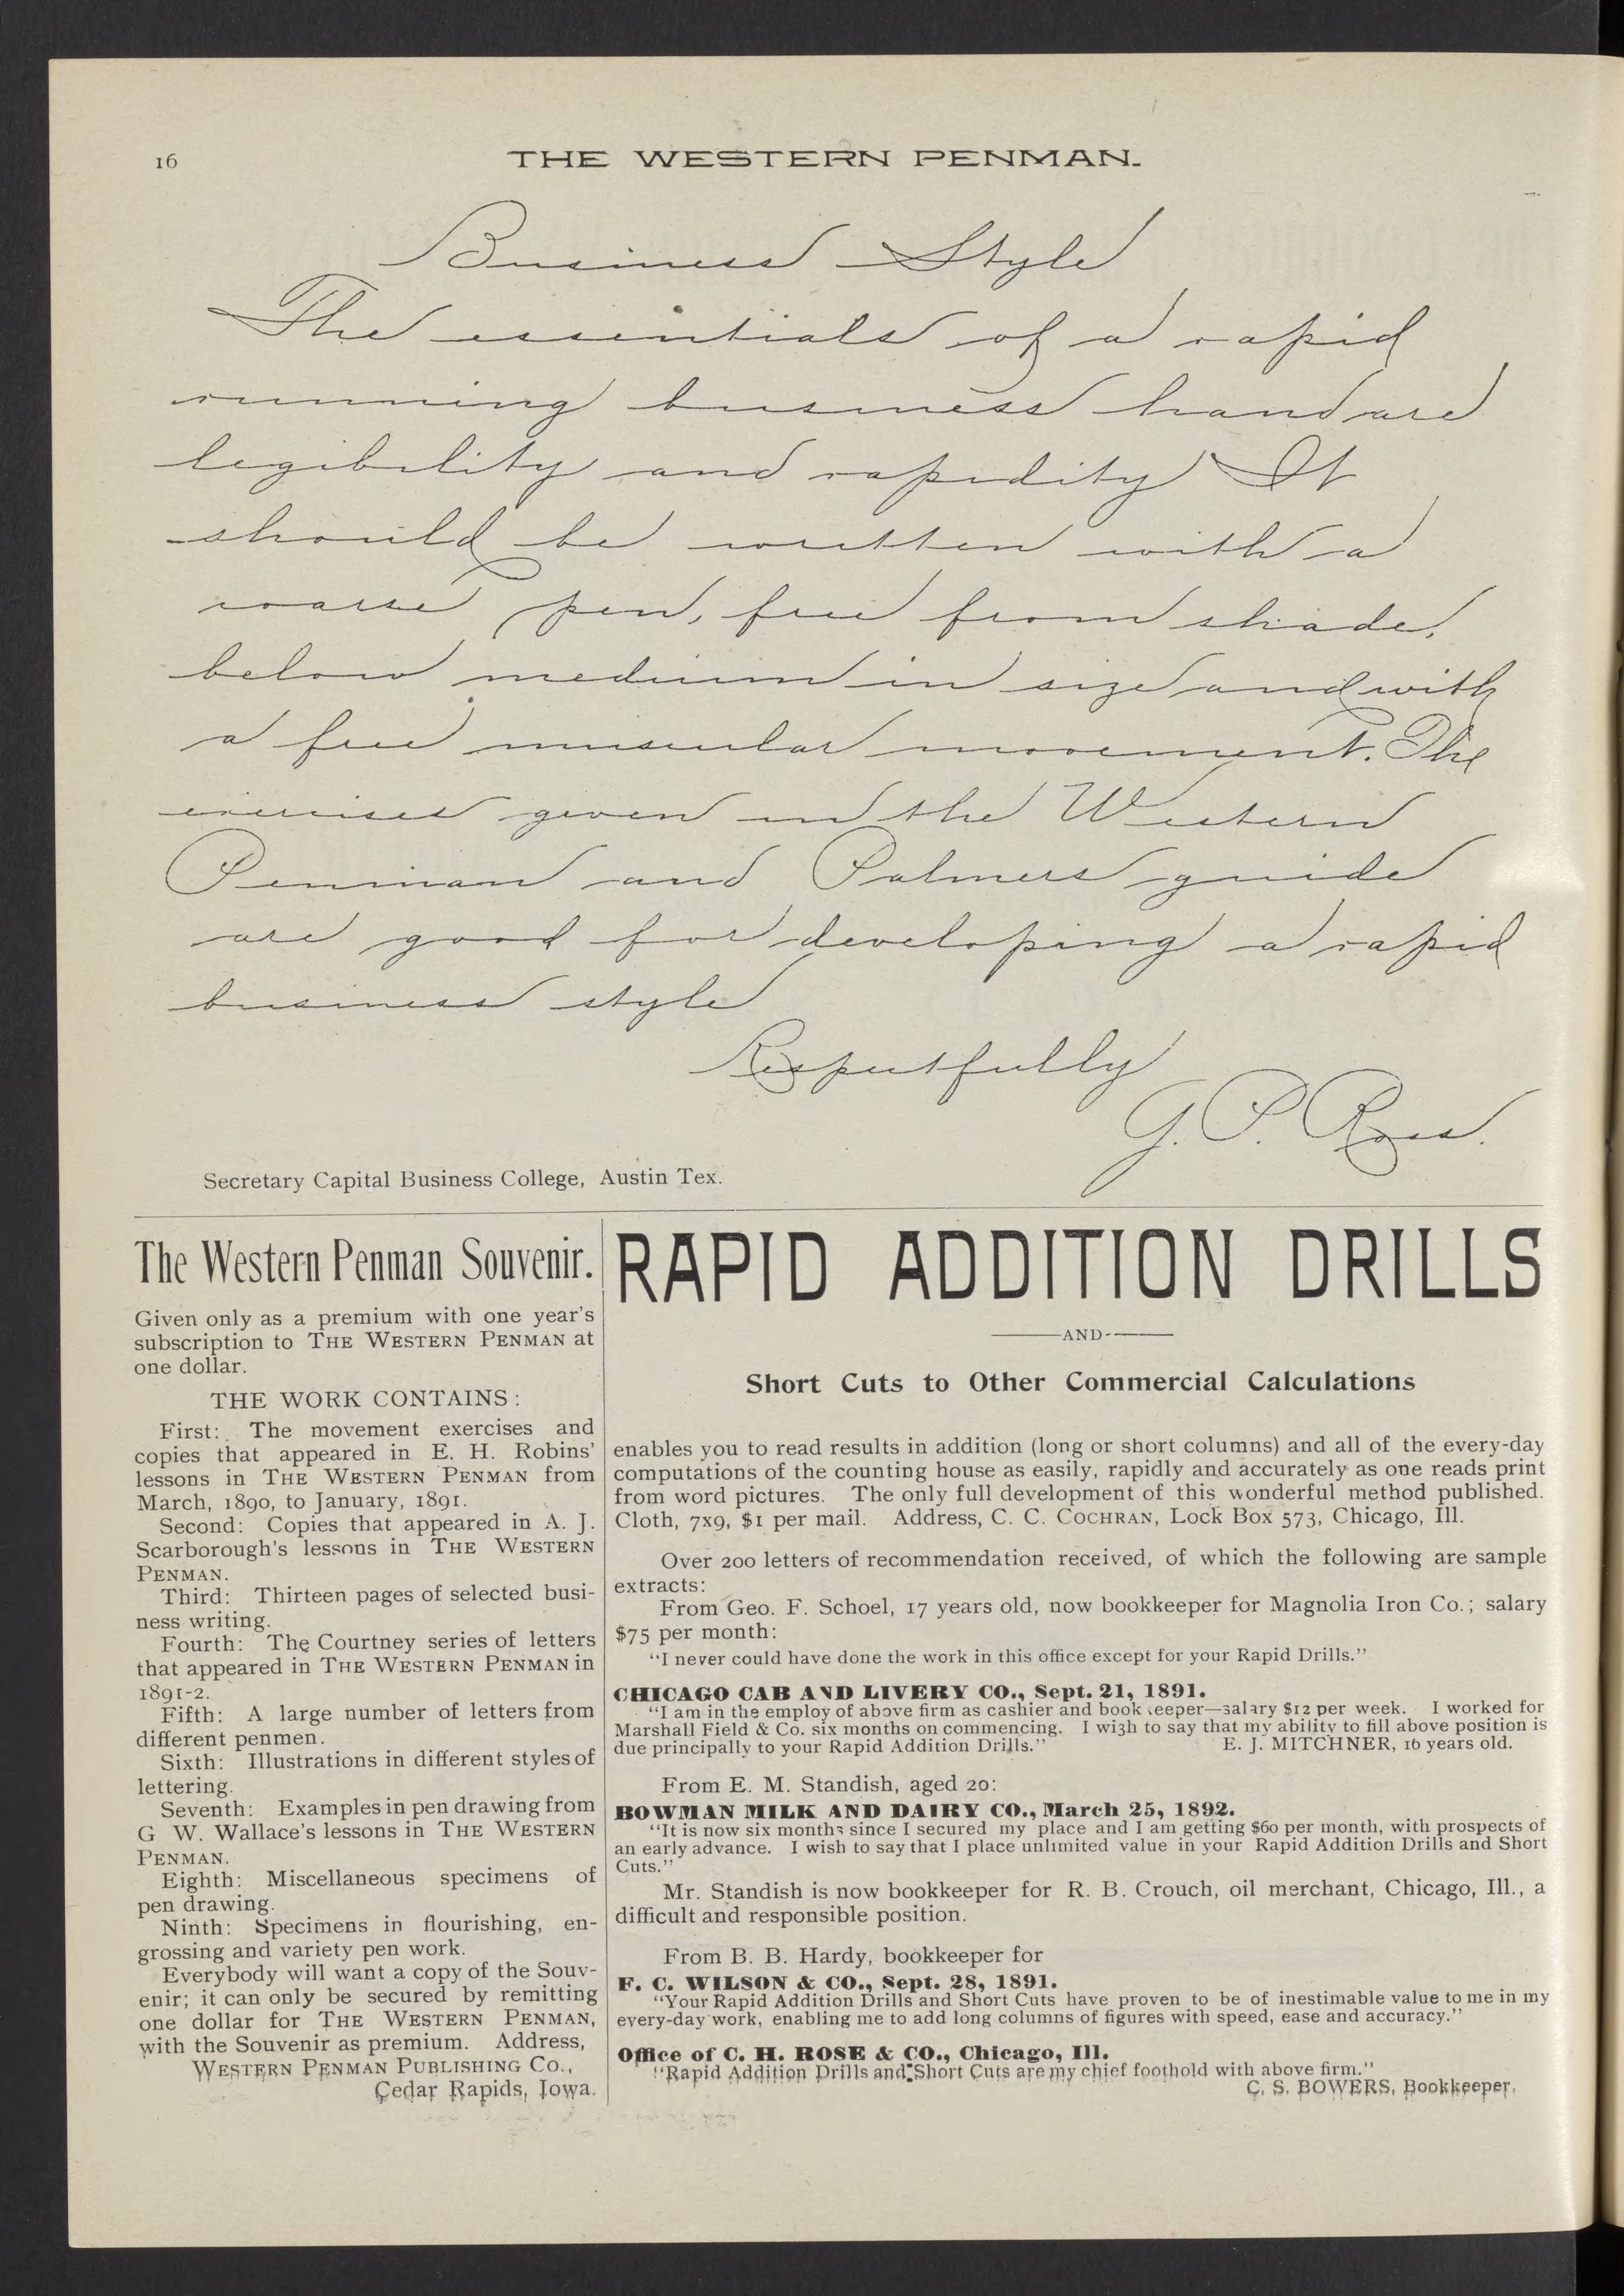 16
THE WESTERN PENMAN.
Business Style
The essentials of a rapid
running business hand are
legibility and rapidity It
should be written with a
coarse pen, free from shade,
below medium in size and with
a free muscular movement. The
exercises given in the Western
Penman and Palmers guide
are good for developing a rapid
business style
Respectfully
G. P. Ross.
Secretary Capital Business College, Austin Tex.
The Western Penman Souvenir.
Given only as a premium with one year's
subscription to THE WESTERN PENMAN at
one dollar.
THE WORK CONTAINS:
First: The movement exercises and
copies that appeared in E. H. Robins'
lessons in THE WESTERN PENMAN from
March, 1890, to January, 1891.
Second: Copies that appeared in A. J.
Scarborough's lessons in THE WESTERN
PENMAN.
Third: Thirteen pages of selected busi-
ness writing.
Fourth: The Courtney series of letters
that appeared in THE WESTERN PENMAN in
1891-2.
Fifth: A large number of letters from
different penmen.
Sixth: Illustrations in different styles of
lettering.
Seventh: Examples in pen drawing from
G W. Wallace's lessons in THE WESTERN
PENMAN.
Eighth: Miscellaneous specimens of
pen drawing.
Ninth: Specimens in flourishing, en-
grossing and variety pen work.
Everybody will want a copy of the Souv-
enir; it can only be secured by remitting
one dollar for THE WESTERN PENMAN,
with the Souvenir as premium. Address,
WESTERN PENMAN PUBLISHING CO.,
Cedar Rapids, Iowa.
RAPID ADDITION DRILLS
—AND—
Short Cuts to Other Commercial Calculations
enables you to read results in addition (long or short columns) and all of the every-day
computations of the counting house as easily, rapidly and accurately as one reads print
from word pictures. The only full development of this wonderful method published.
Cloth, 7x9, $1 per mail. Address, C. C. COCHRAN, Lock Box 573, Chicago, Ill.
Over 200 letters of recommendation received, of which the following are sample
extracts:
From Geo. F. Schoel, 17 years old, now bookkeeper for Magnolia Iron Co.; salary
$75 per month:
"I never could have done the work in this office except for your Rapid Drills."
CHICAGO CAB AND LIVERY CO., Sept. 21, 1891.
"I am in the employ of above firm as cashier and bookkeeper—salary $12 per week. I worked for
Marshall Field & Co. six months on commencing. I wish to say that my ability to fill above position is
due principally to your Rapid Addition Drills." E. J. MITCHNER, 16 years old.
From E. M. Standish, aged 20:
BOWMAN MILK AND DAIRY CO., March 25, 1892.
"It is now six months since I secured my place and I am getting $60 per month, with prospects of
an early advance. I wish to say that I place unlimited value in your Rapid Addition Drills and Short
Cuts."
Mr. Standish is now bookkeeper for R. B. Crouch, oil merchant, Chicago, Ill., a
difficult and responsible position.
From B. B. Hardy, bookkeeper for
F. C. WILSON & CO., Sept. 28, 1891.
"Your Rapid Addition Drills and Short Cuts have proven to be of inestimable value to me in my
every-day work, enabling me to add long columns of figures with speed, ease and accuracy."
Office of C. H. ROSE & CO., Chicago, Ill.
"Rapid Addition Drills and Short Cuts are my chief foothold with above firm."
C. S. BOWERS, Bookkeeper.